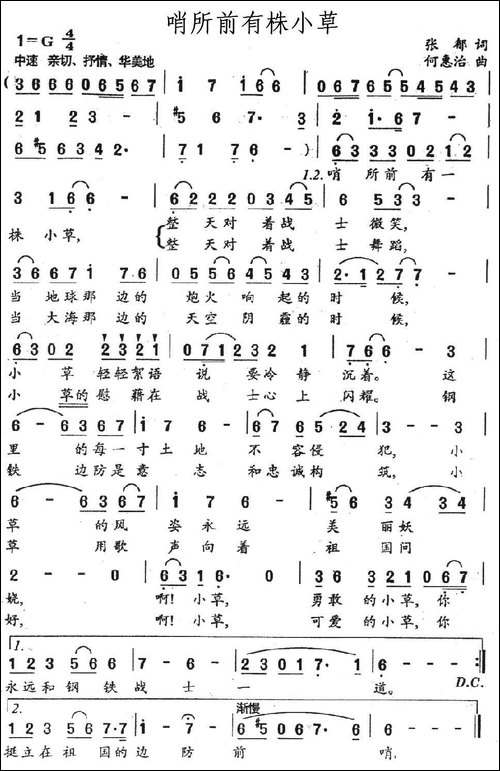 哨所前有株小草
1=G 4/4
张都 词
中速 亲切、抒情、华美地
何惠治 曲
(3666606567 | 1·7 166· | 0676554543
212 23- | #567·3 | 2·1·67
6#56342· | 7176-) | 6333302212
1.2.哨所前有一
3 166- | 622220345 | 6 533-
株小草, 整天对着战士微笑,
整天对着战士舞蹈,
366671 76 | 0555645 43 | 2·1277
当地球那边的 炮火响起的时候,
当大海那边的 天空阴霾的时候,
6302 2321 | 0712 32 | 766-3
小草轻轻絮语 说要冷静沉着。这
小草的慰藉在 战士心上闪耀。钢
6-6367 | 176- | 67 65 524 | 3--3
里的每一寸土地不容侵犯,小
铁边防是意志和忠诚构筑,小
6-6367 | 176- | #56 67 31
草的风姿永远美丽妖
草用歌声向着祖国问
2--0 | 63 16·0 | 336 321067
娆, 啊!小草, 勇敢的小草,你
好, 啊!小草, 可爱的小草,你
1.
123566 | 7-6- | 23017·1 | 6--:|
永远和钢铁战士一道。 D.C.
2. 渐慢
123 56 7·7 | 6#5067·6 | 6--- |
挺立在祖国的边防前哨。